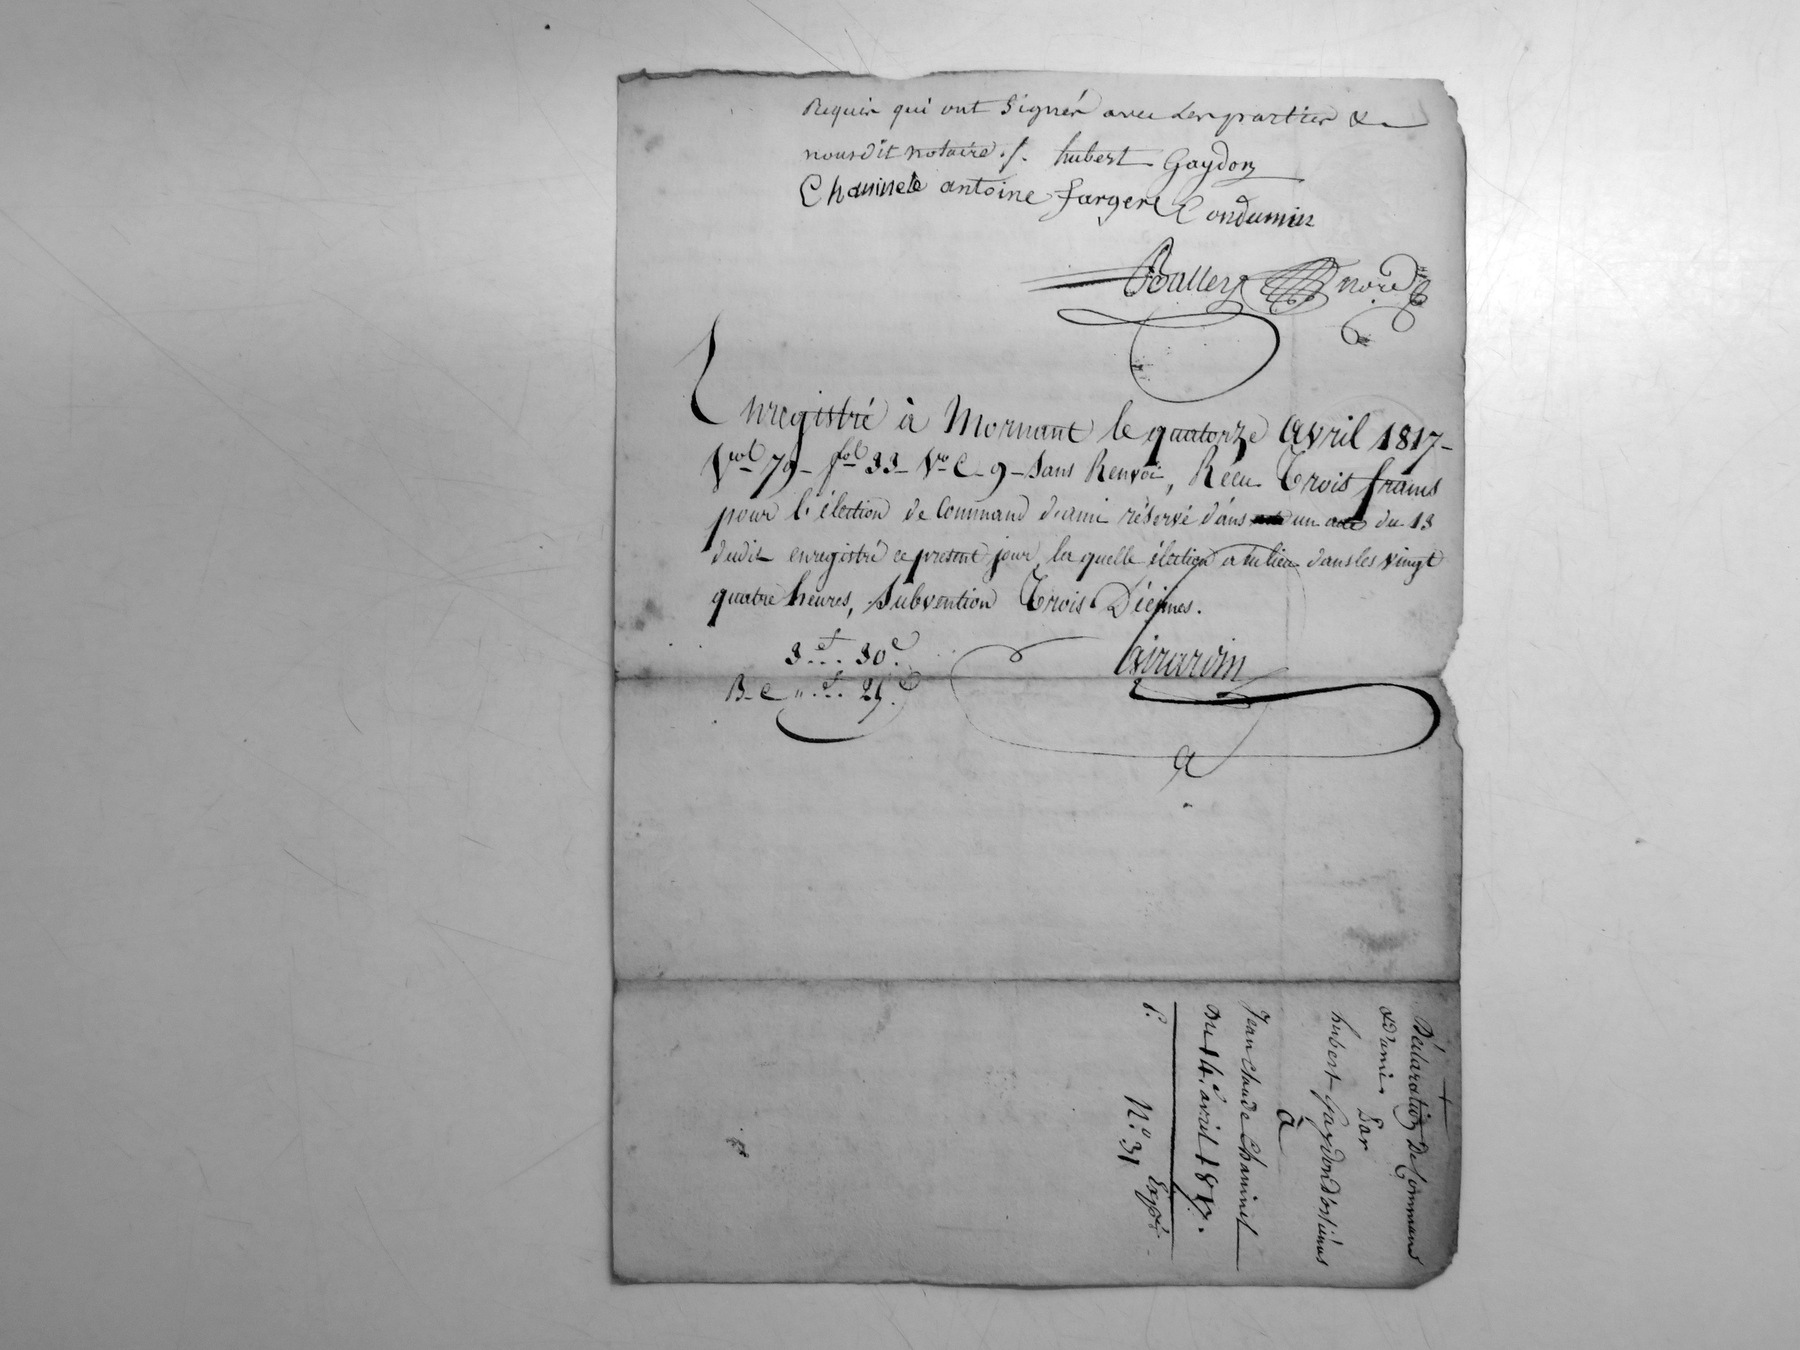 Requis qui ont signés avec les parties &
nousdit notaire ./. hubert Gaydon
Chaminet antoine fargere Condamin
Balley nore
Enregistré à Mornant le quatorze avril 1817-
Vol 79- fol 33- Vo C- 9- Sans Renvoi, Récu Trois francs
pour l'élection de Command d'ami réservé dans un acte du 13
dudit enregistré ce présent jour, la quelle élection a eu lieu dans les vingt
quatre heures, Subvention Trois Décimes.
3f.. 30c.
B-C ".f. 25.c
Girardin
a
+
Déclaration de Command
& d'ami. Par
hubert Gaydon d'orliénas
à
Jean Claude Cheminet
Du 14.e avril 1817.
Expé.
N.o 31